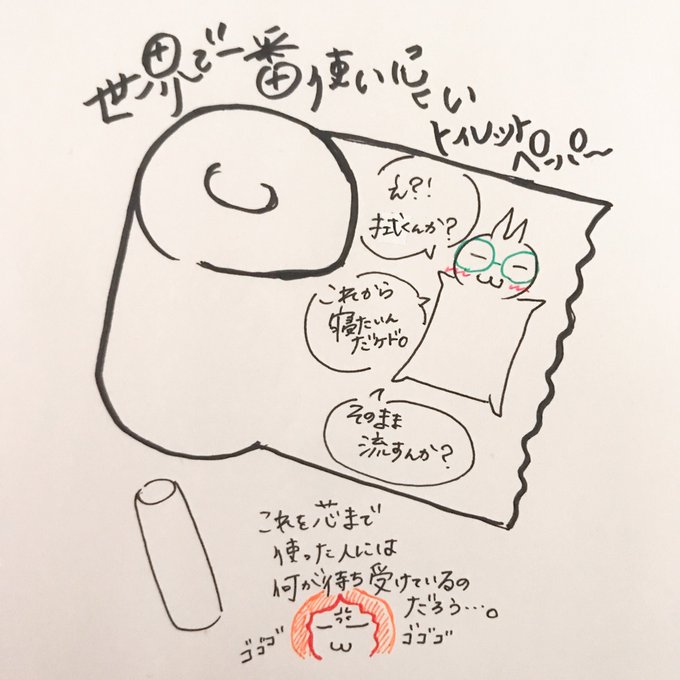 世界で一番使い心地
トイレットペーパー
え?!
拭くんか?
これから
寝たいん
だケド。
そのまま
流すんか?
これを芯まで
使った人には
何が待ち受けているの
だろう…。
ゴゴゴ
ゴゴゴ